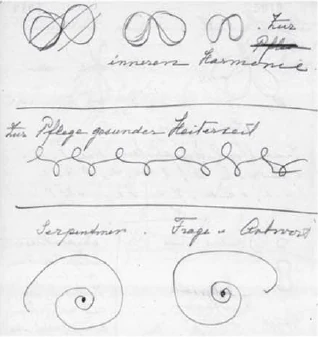 . Zur
Pfle
inneren Harmonie.
Zur Pflege gesunder Heiterkeit
Serpentinen . Frage u Antwort